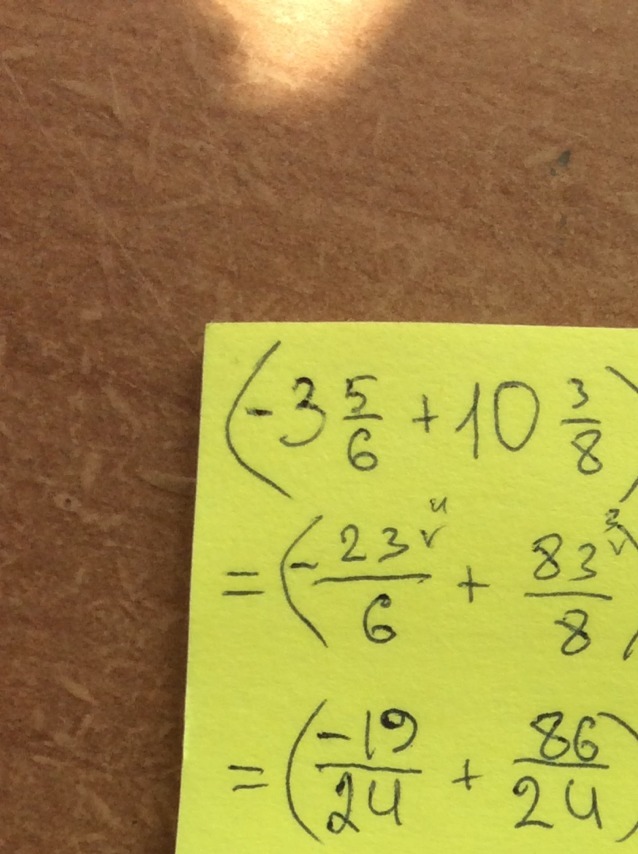 (-3 5/6 + 10 3/8)
= (-23/6 ⁴ + 83/8 ³)
= (-19/24 + 86/24)